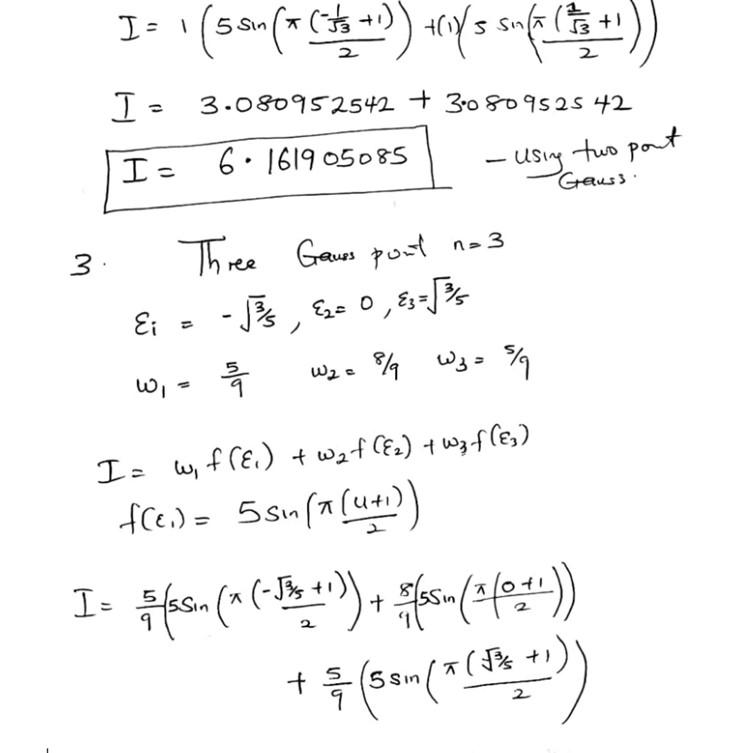 I = 1 (5 sin (π (-1/√3 + 1)/2)) + (1)(5 sin (π (1/√3 + 1)/2))
I = 3.080952542 + 3.080952542
I = 6.161905085 – using two point
Gauss.
3. Three Gauss point n=3
εi = -√3/5 , ε2 = 0 , ε3 = √3/5
w1 = 5/9 w2 = 8/9 w3 = 5/9
I = w1 f(ε1) + w2 f(ε2) + w3 f(ε3)
f(ε1) = 5 sin (π (u+1)/2)
I = 5/9 (5 sin (π (-√3/5 + 1)/2)) + 8/9 (5 sin (π (0+1)/2))
+ 5/9 (5 sin (π (√3/5 + 1)/2))